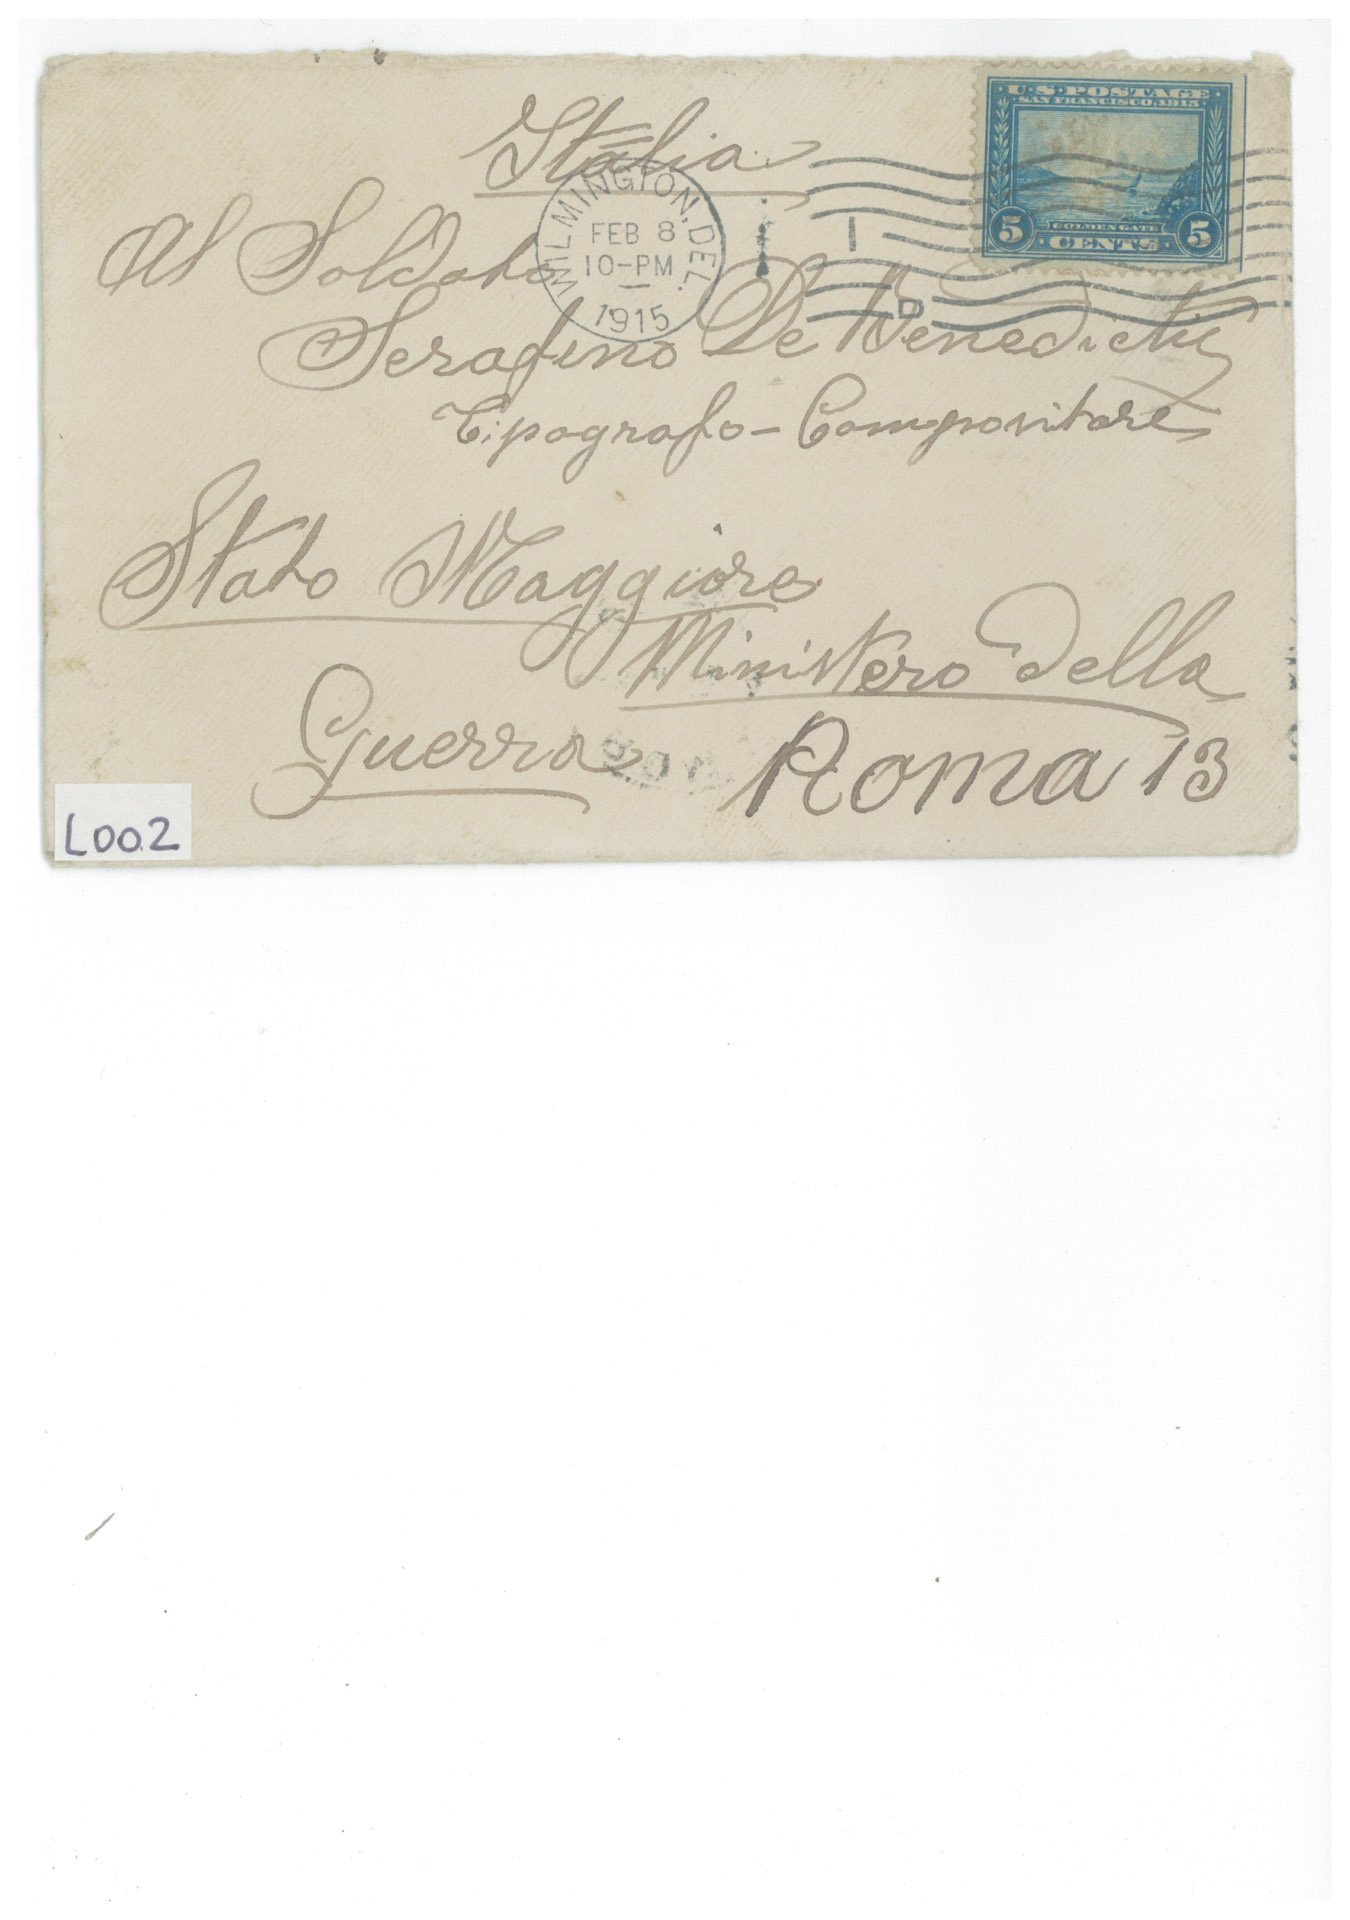 Italia
U.S. POSTAGE
SAN FRANCISCO, 1915
GOLDEN GATE
5 CENTS 5
WILMINGTON, DEL.
FEB 8
10-PM
1915
D
Al Soldato
Serafino De Benedictis
Tipografo - Compositore
Stato Maggiore
Ministero della
Guerra Roma 13
L002